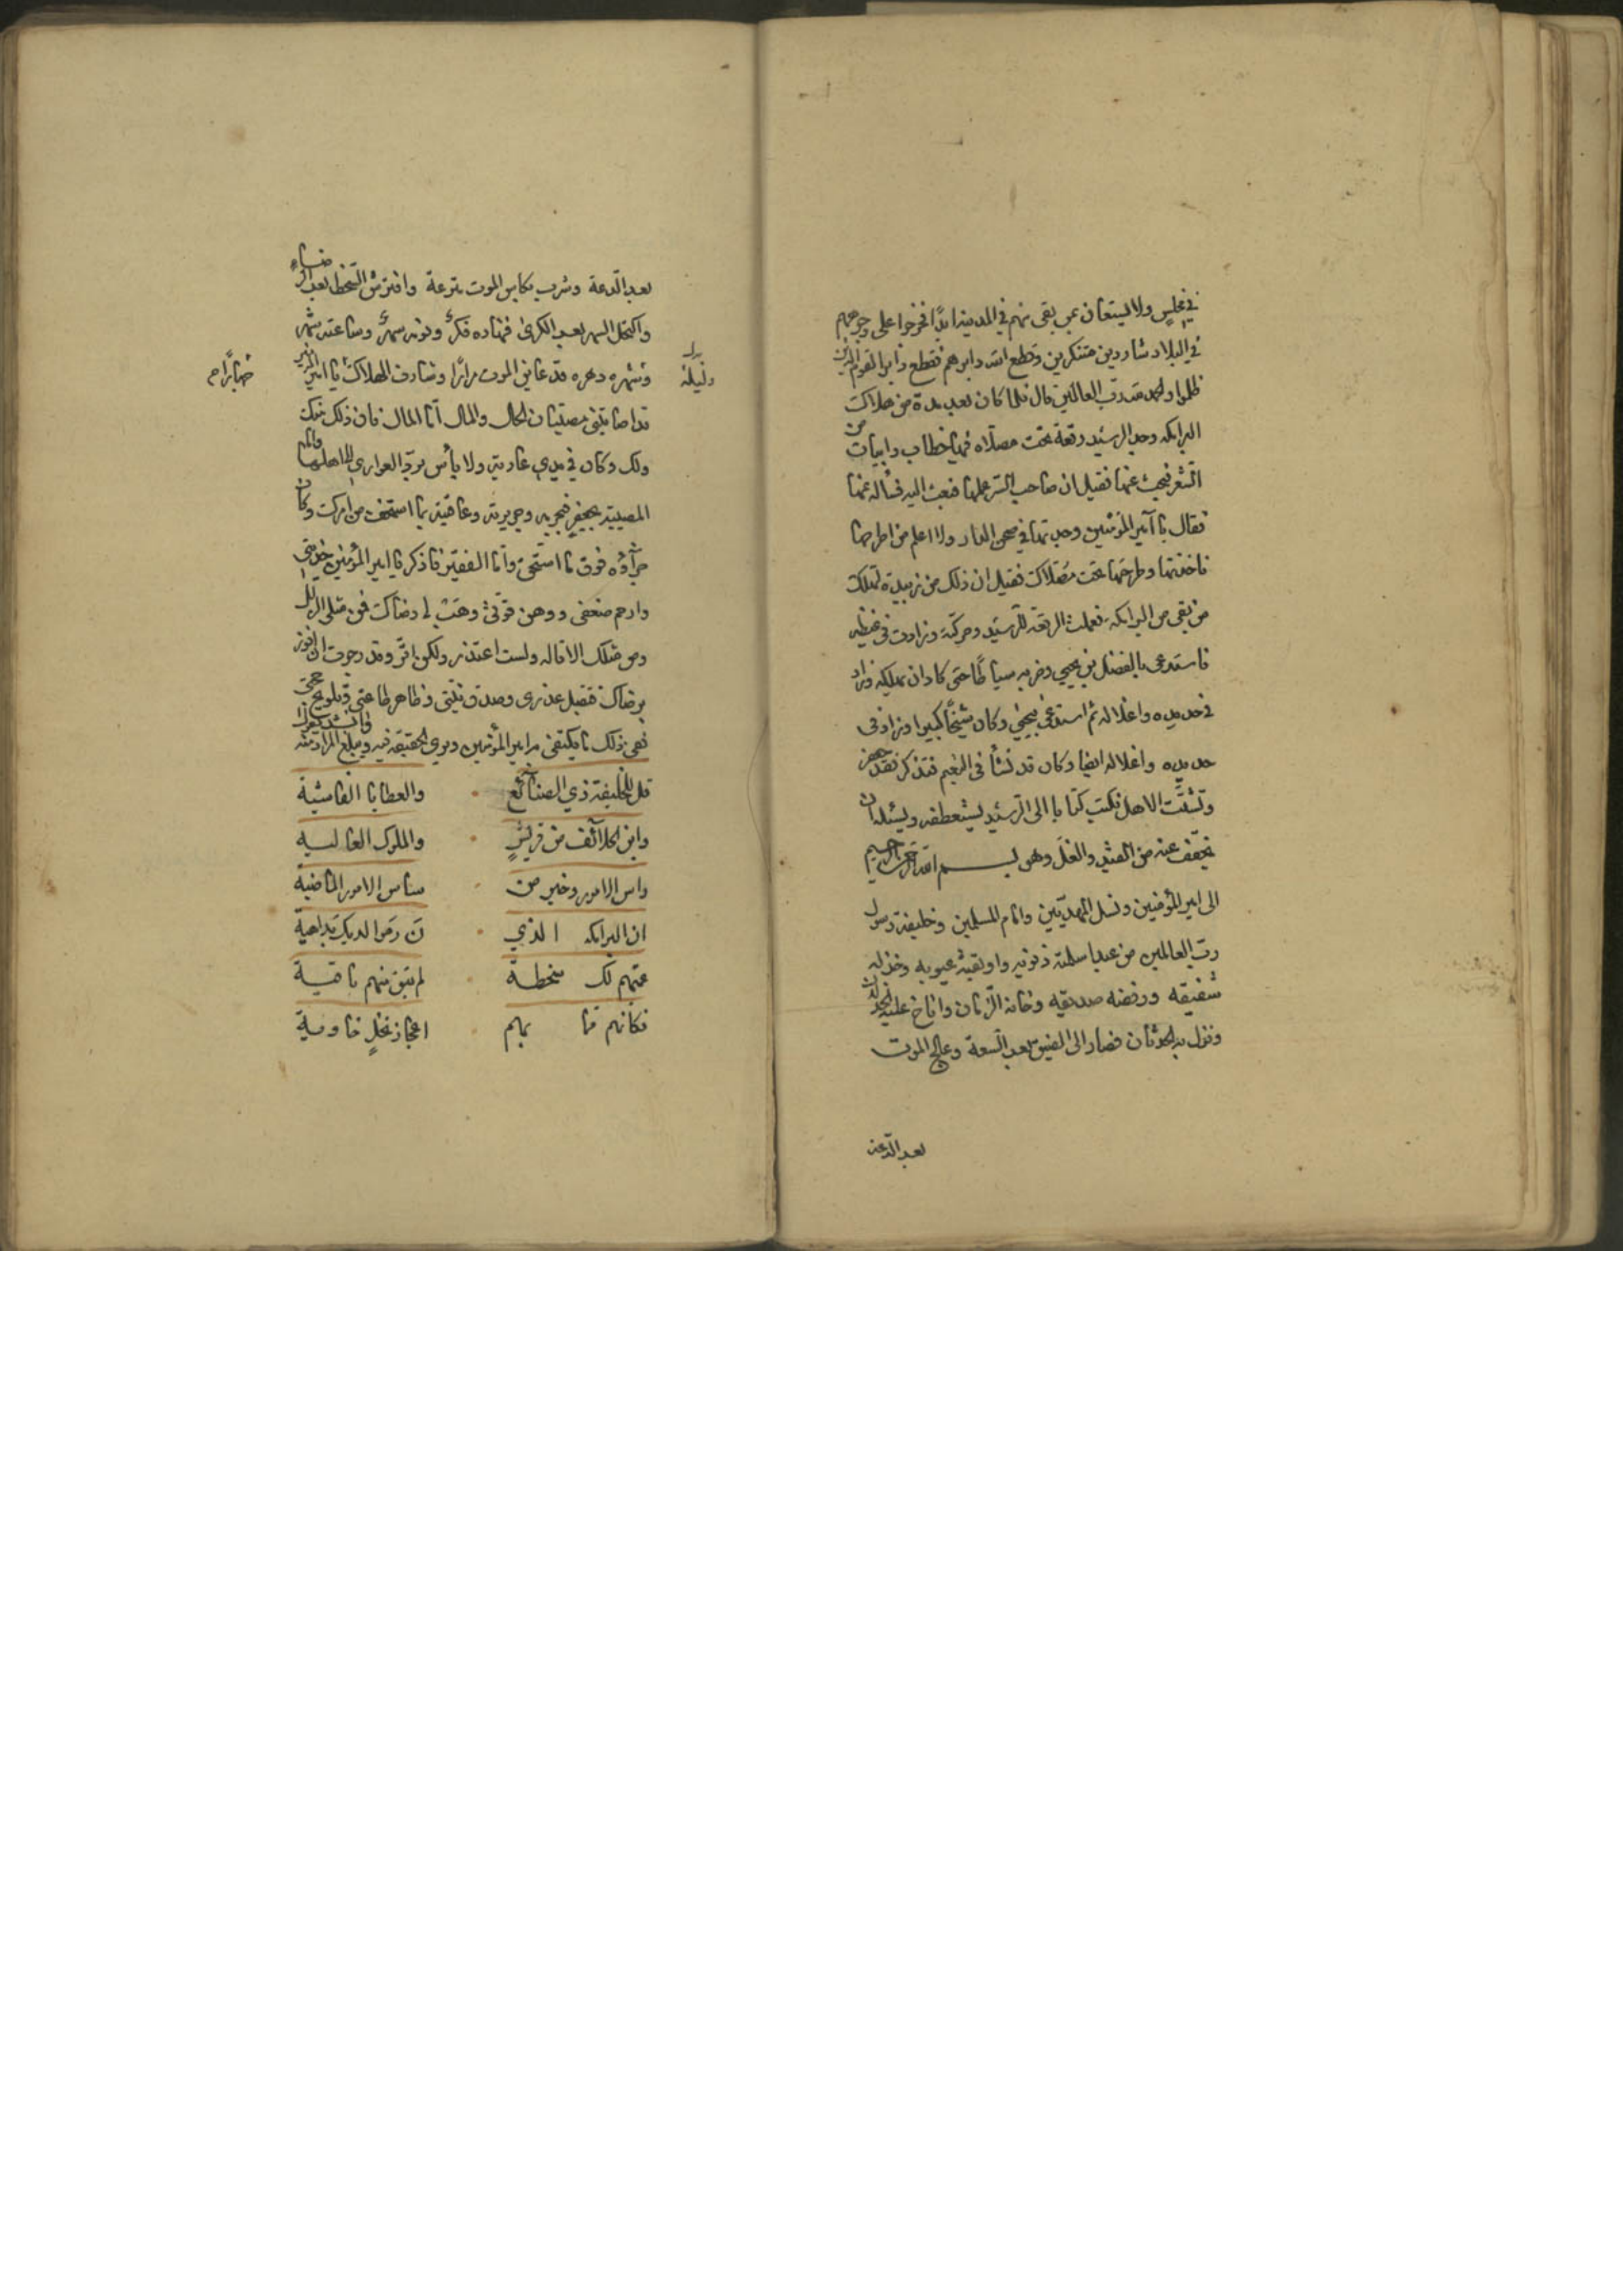 في مجلس ولا يستعان بمن بقي منهم في المدينة ابدًا فخرجوا على وجوههم
في البلاد شاردين متنكرين وقطع الله دابرهم فقطع دابر القوم الذين
ظلموا والحمد لله رب العالمين قال فلما كان بعد مدة من هلاك
البرامكه وجد الرشيد رقعة تحت مصلاه فيها خطاب وابيات من
الشعر فبحث عنها فقيل ان صاحب الستر عملها فبعث اليه فسأله عنها
فقال يا أمير المؤمنين وجدتها في صحن الدار ولا اعلم من اطرحها
فاخذتها وطرحتها تحت مصلاك فقيل ان ذلك من زبيدة لتهلك
من بقي من البرامكه فعملت الرقعة للرشيد وحركته وزادت في غيظه
فاستدعى بالفضل بن يحيى وضربه سياطًا حتى كاد ان يهلكه وزاد
في حديده واغلاله ثم استدعى بيحيى وكان شيخًا كبيرا وزاد في
حديده واغلاله ايضا وكان قد نشأ في النعيم فتذكر فقد
وتشتت الاهل فكتب كتابا الى الرشيد يستعطفه ويسئله ان
يخفف عنه من القيد والغل وهو بسم الله الرحمن الرحيم
الى امير المؤمنين ونسل المهديين وامام المسلمين وخليفة رسول
رب العالمين من عبد اسلمته ذنوبه واوبقته عيوبه وخذله
شقيقه ورفضه صديقه وخانه الزمان واناخ عليه الحدثان
ونزل به الحدثان فصار الى الضيق بعد السعة وعالج الموت
بعد الدعة
بعد الدعة وشرب بكاس الموت مترعة وافترش السخط بعد الرضاء
واكتحل السهر بعد الكرى فنهاره فكر ونومه سهر وساعته شهر
وليلة
وشهره دهره قد عاين الموت مرارًا وشارف الهلاك يا امير المؤمنين
جهارًا
قد اصابتني مصيبتان الحال والمال أما المال فان ذلك منك
ولك وكان في يدي عارية ولا بأس برد العواري الى اهلها واما
المصيبة بجعفر فبجرمه وجريرته وعاقبته بما استخف من امرك وكان
جزآؤه فوق ما استحق وأما الفقير فاذكر يا امير المؤمنين خدمتي
وارحم ضعفي ووهن قوتي وهب لي رضاك فمن مثلي الزلل
ومن مثلك الاقاله ولست اعتذر ولكن اقر وقد رجوت ان افوز
برضاك فتقبل عذري وصدق نيتي وظاهر طاعتي وبلوج حجتي
ففي ذلك ما يكتفي به امير المؤمنين ويرى الحقيقة فيه ويبلغ المراد منه وانشد يقول
قل للخليفة ذي الصنائع والعطايا الفاشية
وابن الخلائف من قريش والملوك العاليه
راس الامور وخير من ساس الامور الماضية
ان البرامكه الذي ن رموا لديك بداهية
عمتهم لك سخطة لم تبق منهم باقية
فكانهم مما بهم اعجاز نخل خاوية